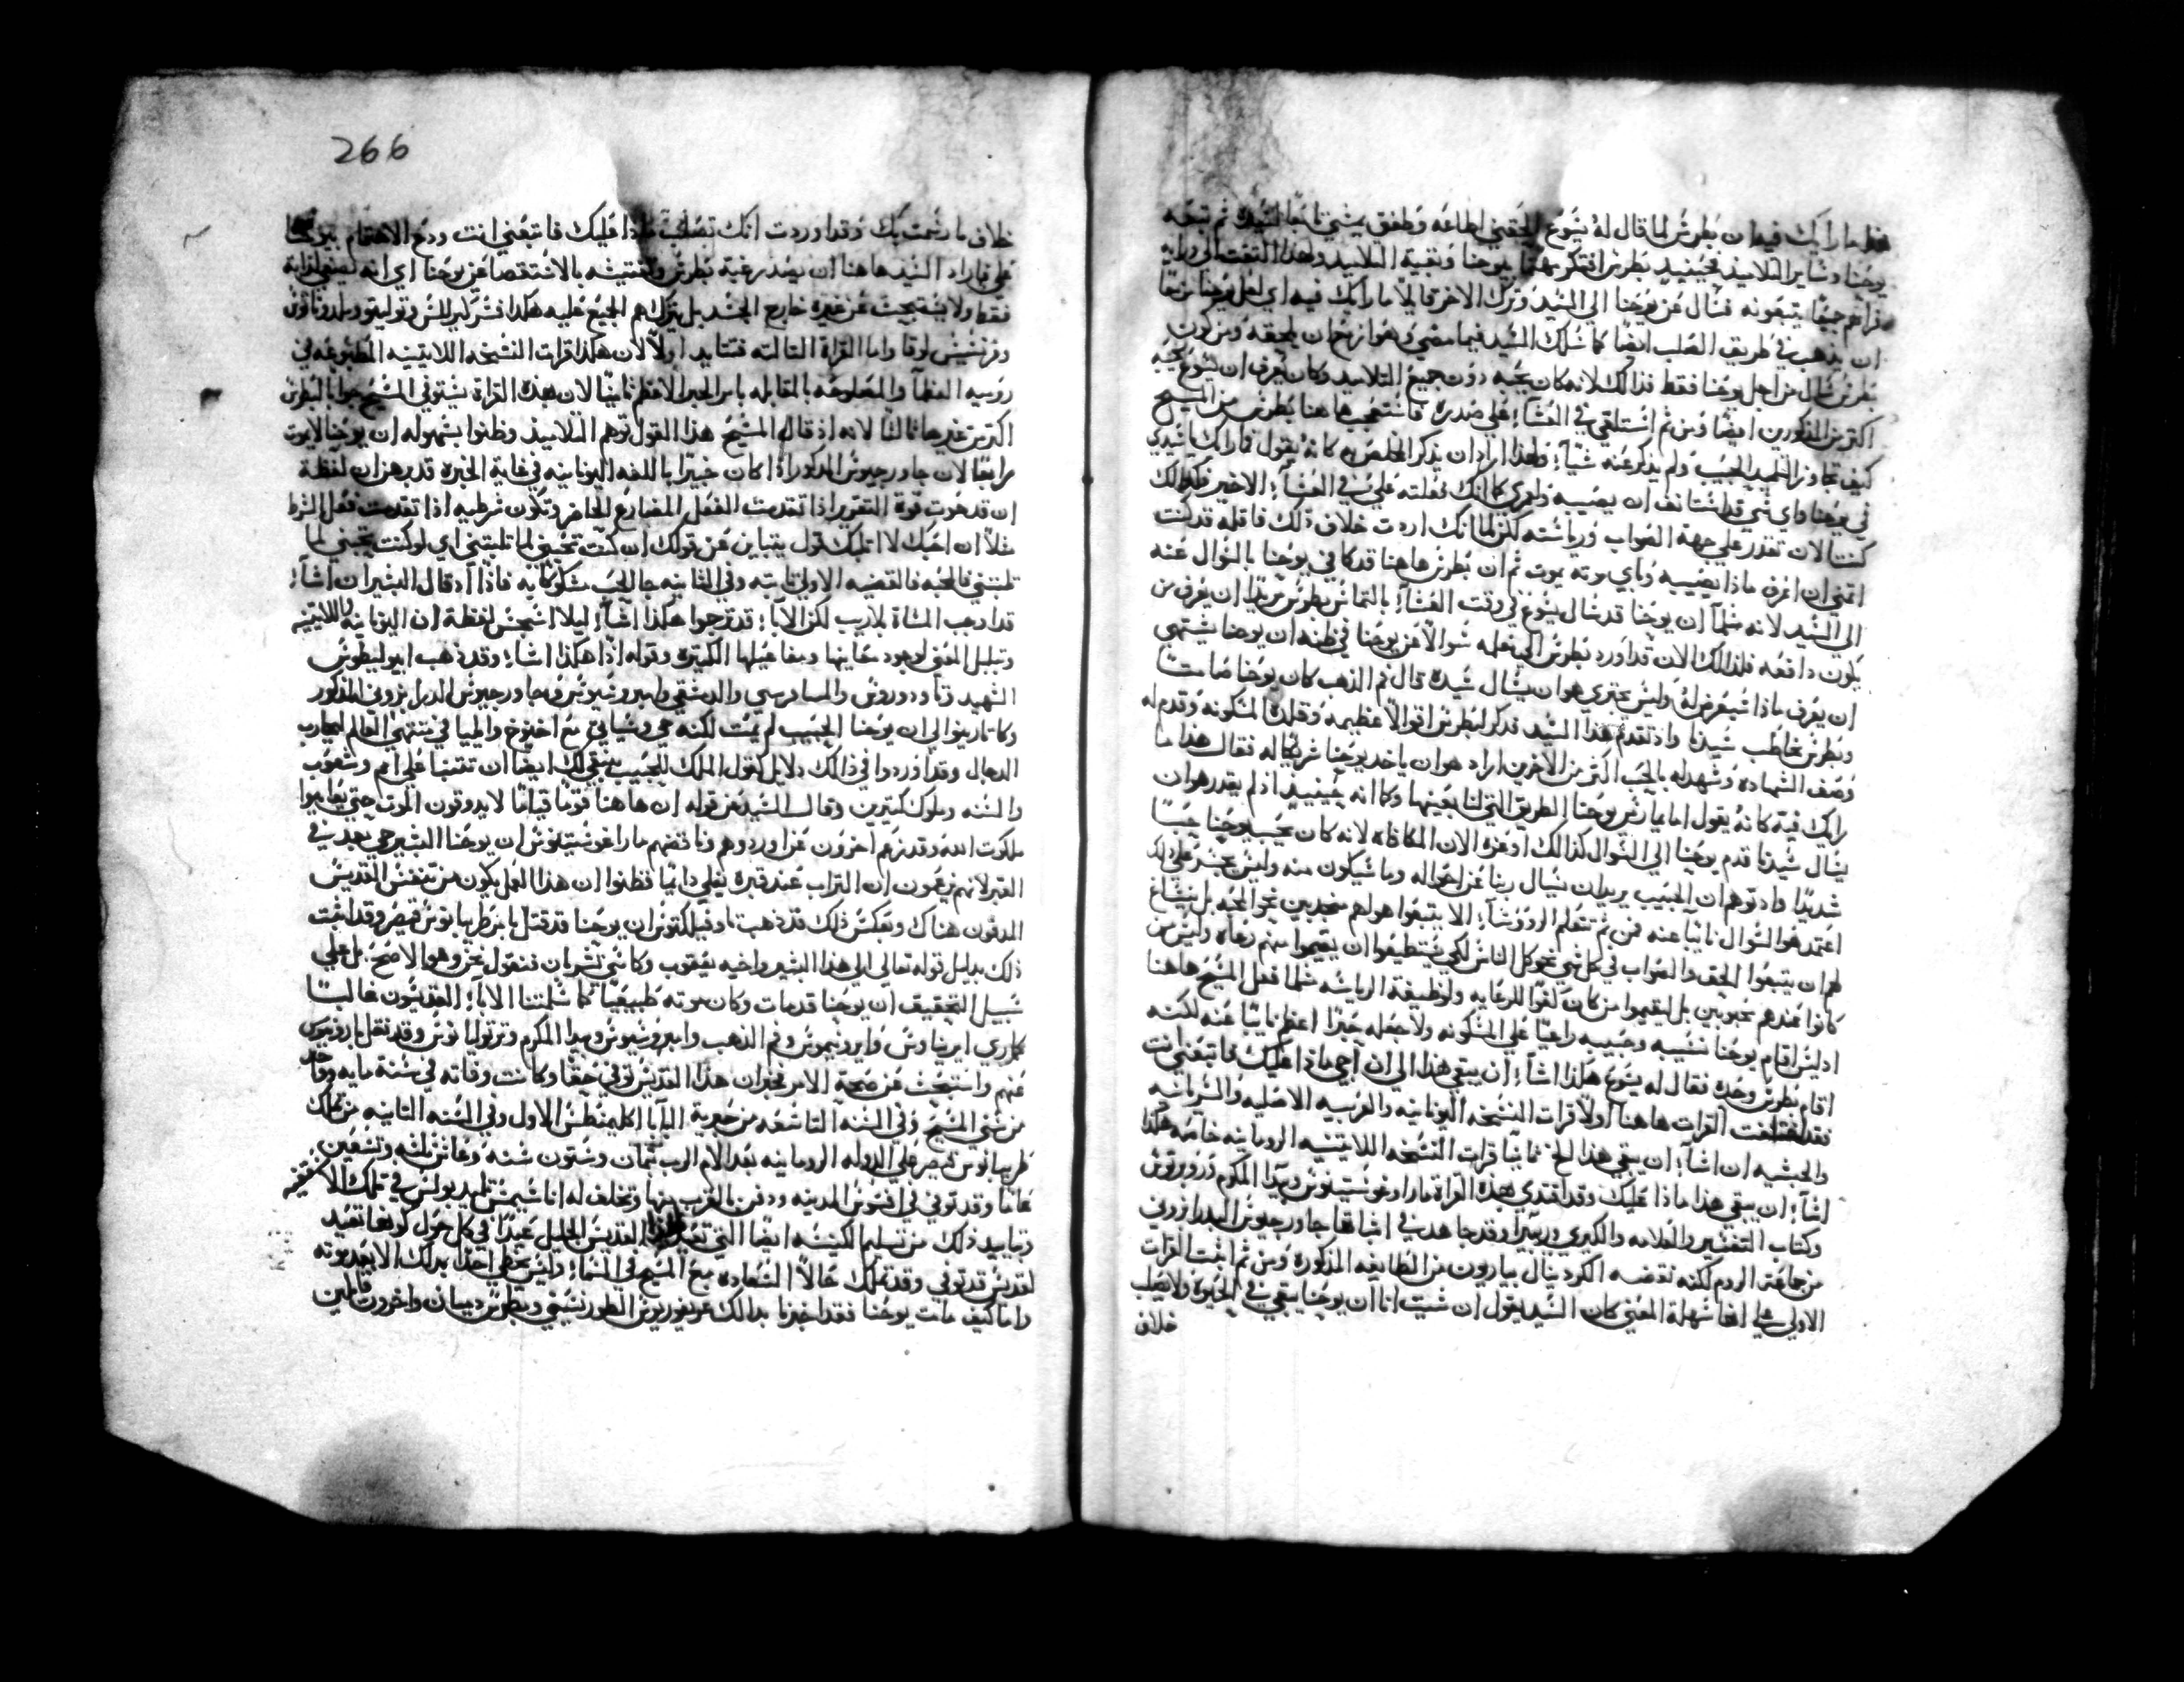 فقط ما رايك فيه ان بطرس لما قال له يسوع الحقني اطاعه وطفق يمشي تابعا لسيده ثم تبعه
يوحنا وساير التلاميذ فحينيذ بطرس افتكر مهتما بيوحنا وبقية التلاميذ ولهذا التفت الي ورايه
فراهم جميعا يتبعونه فسال عن يوحنا الي السيد وترك الاخر قايلا ما رايك فيه اي لعل يوحنا مزمعا
ان يذهب في طريق الصلب ايضا كما سلك السيد فيما مضي وهو ازمع ان يلحقه ومن كون
بطرس سال من اجل يوحنا فقط فذالك لانه كان يحبه دون جميع التلاميذ وكان يعرف ان يسوع يحبه
اكثر من المذكورين ايضا ومن ثم استلقي في العشآ علي صدره فاستعجب هاهنا بطرس من المسيح
كيف تجاوز التلميذ الحبيب ولم يذكر عنه شيآ ولهذا اراد ان يذكر المخلص به كانه يقول فما رايك يا سيدي
في يوحنا واي شي قد استانف ان يصيبه ولعمري كانك فعلته علي في العشآ الاخير فكذالك
كنت الان تقدر علي جهة الصواب ورياسته لكن لما انك اردت خلاف ذلك فاقله قد كنت
اتمني ان اعرف ماذا يصيبه وباي موته يموت ثم ان بطرس هاهنا قد كافي يوحنا بالسوال عنه
الي السيد لانه مثلما ان يوحنا قد سال يسوع في وقت العشآ بالتماس بطوس مريدا ان يعرف من
يكون دافعه فلذالك الان قد اورد بطرس الي معلمه سوالا عن يوحنا في ظنه ان يوحنا يشتهي
ان يعرف ماذا سيعرض له وليس يجتري هو ان يسال سيده قال فم الذهب كان يوحنا صامتا
وبطرس يخاطب سيدنا واذ تقدم هذا السيد قد ذكر لبطرس اقوالا عظيمه وقلده المسكونه وقدم له
وصف الشهاده وشهد له بالحب اكثر من الاخرين اراد هو ان ياخذ يوحنا شريكا له فقال هذا ما
رايك فيه كانه يقول اما يمارس يوحنا الطريق التي لنا بعينها وكما انه حينيذ اذ لم يقدر هو ان
يسال سيدنا قدم يوحنا الي السوال كذالك اوعزه الان المكافاه لانه كان يحب يوحنا حبا
شديدا واذ توهم ان الحبيب يريد ان يسال ربنا عن احواله وما سيكون منه وليس يجسر علي ذلك
اعتمد هو السوال نايبا عنه فمن ثم تتعلم الروسآ الا يتبعوا هواهم منجذبين نحو المحبه بل ينبغي
لهم ان يتبعوا الحق والصواب في كل شي نحو كل الناس لكي يستطيعوا ان يقيموا منهم رعاه وليس من
كانوا عندهم محبوبين بل ليقيموا من كان كفوا للرعايه ولوظيفة الرياسه مثلما فعل المسيح هاهنا
اذ ليس اقام يوحنا نسيبه وحبيبه راعيا علي المسكونه ولا جعله حبرا اعظم نايبا عنه لكنه
اقام بطرس وحده فقال له يسوع هكذا اشآ ان يبقي هذا الي ان اجي ماذا عليك فاتبعني انت
فقد اختلفت القرات هاهنا اولا قرات النسخه اليونانيه والعربيه الاصليه والسريانيه
والحبشيه ان اشآ ان يبقي هذا الخ ثانيا قرات النسخه اللاتينيه الرومانيه خاصه هكذا
اشآ ان يبقي هذا ماذا عليك وقد اقتدي بهذه القراة مار اوغوستينوس وبيدا المكرم وروبرتوس
وكتاب التفسير والعلامه والكيري وريبيرا وقد جاهد في اثباتها جاورجيوس الطرابزوني
من جماعة الروم لكنه نقضه الكردينال بيصاريون من الطايفه المذكوره ومن ثم اثبت القرات
الاولي علي انها سهلة المعني كان السيد يقول ان شيت انا ان يوحنا يبقي في الحيوة ولا يصلب
خلاف
266
خلاف ما رسمت بك وقد اوردت انك تصلب ماذا عليك فاتبعني انت ودع الاهتمام بيوحنا
علي فاراد السيد هاهنا ان يصد رغبة بطرس وتفتيشه بالاستقصا عن يوحنا اي انه يصغي لذاته
فقط ولا يبحث عن غيره خارج الحد بل يترك هم الجميع عليه هكذا فسر كيرللس وتوليتو وملدوناتوس
وفرنسيس لوقا واما القراة الثالثه فتتايد اولا لان هكذا قرات النسخه اللاتينيه المطبوعه في
روميه العظمآ والمصلوحه بالمقابله بامر الحبر الاعظم ثانيا لان هذه القراة يستوفي المسيح جوابا لبطرس
اكثر من غيرها ثالثا لانه اذ قال المسيح هذا القول توهم التلاميذ وظنوا بسهوله ان يوحنا لا يموت
مرابعا لان جاورجيوس المذكور اذ كان خبيرا باللغه اليونانيه في غاية الخبره قد برهن ان لفظة
ان قد حوت قوة التقرير اذا تقدمت الفعل المضارع الحاضر وتكون شرطيه اذا تقدمت فعل الشرط
مثلا ان احبك لا اثلبك قول يتباين عن قولك ان كنت تحبني لما ثلبتني اي لو كنت تحبني لما
ثلبتني فالمحبه فالقضيه الاولي ثابته وفي الثانيه جا الحب مشكوكا به فاذا اذ قال البشير ان اشآ
قد اوجب المشاة بلا ريب لكن الابآ قد ترجموا هكذا اشآ ليلا اشمجس لفظة ان اليونانيه واللاتينيه
وتبلبل المعني لوجود معاينها ومفاعيلها الكثيره وقوله اذا هكذا اشآ وقد ذهب ايبوليطوس
الشهيد وثاودوروس والمسافرسي والدمشقي وامبروسيوس وجاورجيوس الطرابزوني المذكور
وكاتارينوا الي ان يوحنا الحبيب لم يمت لكنه حي وسياتي مع اخنوخ وايليا في منتهي العالم ليحارب
الدجال وقد اوردوا في ذالك دلايل كقول الملك للحبيب ينبغي لك ايضا ان تتنبا علي امم وشعوب
والسنه وملوك كثيرين وقال السيد عن قوله ان هاهنا قوما قياما لا يذوقون الموت حتي يعاينوا
ملكوت الله وقد زعم اخرون عن اوردوهم وناقضهم مار اغوستينوس ان يوحنا البشير حي بعد في
القبر لانهم يزعمون ان التراب عند قبره يغلي دايما فظنوا ان هذا الغلي يكون من تنفس القديس
المدفون هناك وبعكس ذلك قد ذهب ثاوفيلكتوس ان يوحنا قد قتل بامر طريانوس قيصر وقد اثبت
ذلك بدليل قوله تعالي الي هذا البشير واخيه يعقوب وكاسي تشربان فنقول نحن وهو الاصح بل علي
سبيل التحقيق ان يوحنا قد مات وكان موته طبيعيا كما سلمتنا الابآ القديسون غالبا
كماري ايريناوس وايرونيموس وفم الذهب وامبروسيوس وبيدا المكرم وترتوليانوس وقد نقل بارونيوس
عنهم واستبحث عن صحة الامر فخبر ان هذا القديس توفي حقا وكانت وفاته في سنة مايه وواحد
من سني المسيح وفي السنه التاسعه من حبرية البابا اكليمنطس الاول وفي السنه الثانيه من تملك
طريانوس قيصر علي الدوله الرومانيه بعد الام الرب بثمان وستون سنه وعاش ثلثه وتسعين
عاما وقد توفي في افسوس المدينه ودفن بالقرب منها وتخلف له اناسيمس تلميذ بولس في تلك الاسقفيه
وتتايد ذلك من تسليم الكنيسه ايضا التي تعيد لهذا القديس الجليل عيدا في كل حول كونها تعيد
لقديس قد توفي وقد تملك حالا السعاده مع المسيح في السمآ وليس يحظي احدا بذلك الا بعد موته
واما كيف مات يوحنا فقد اخبرنا بذالك غريغوريوس الطورنسيني وبطرس دميان واخرون قايلين